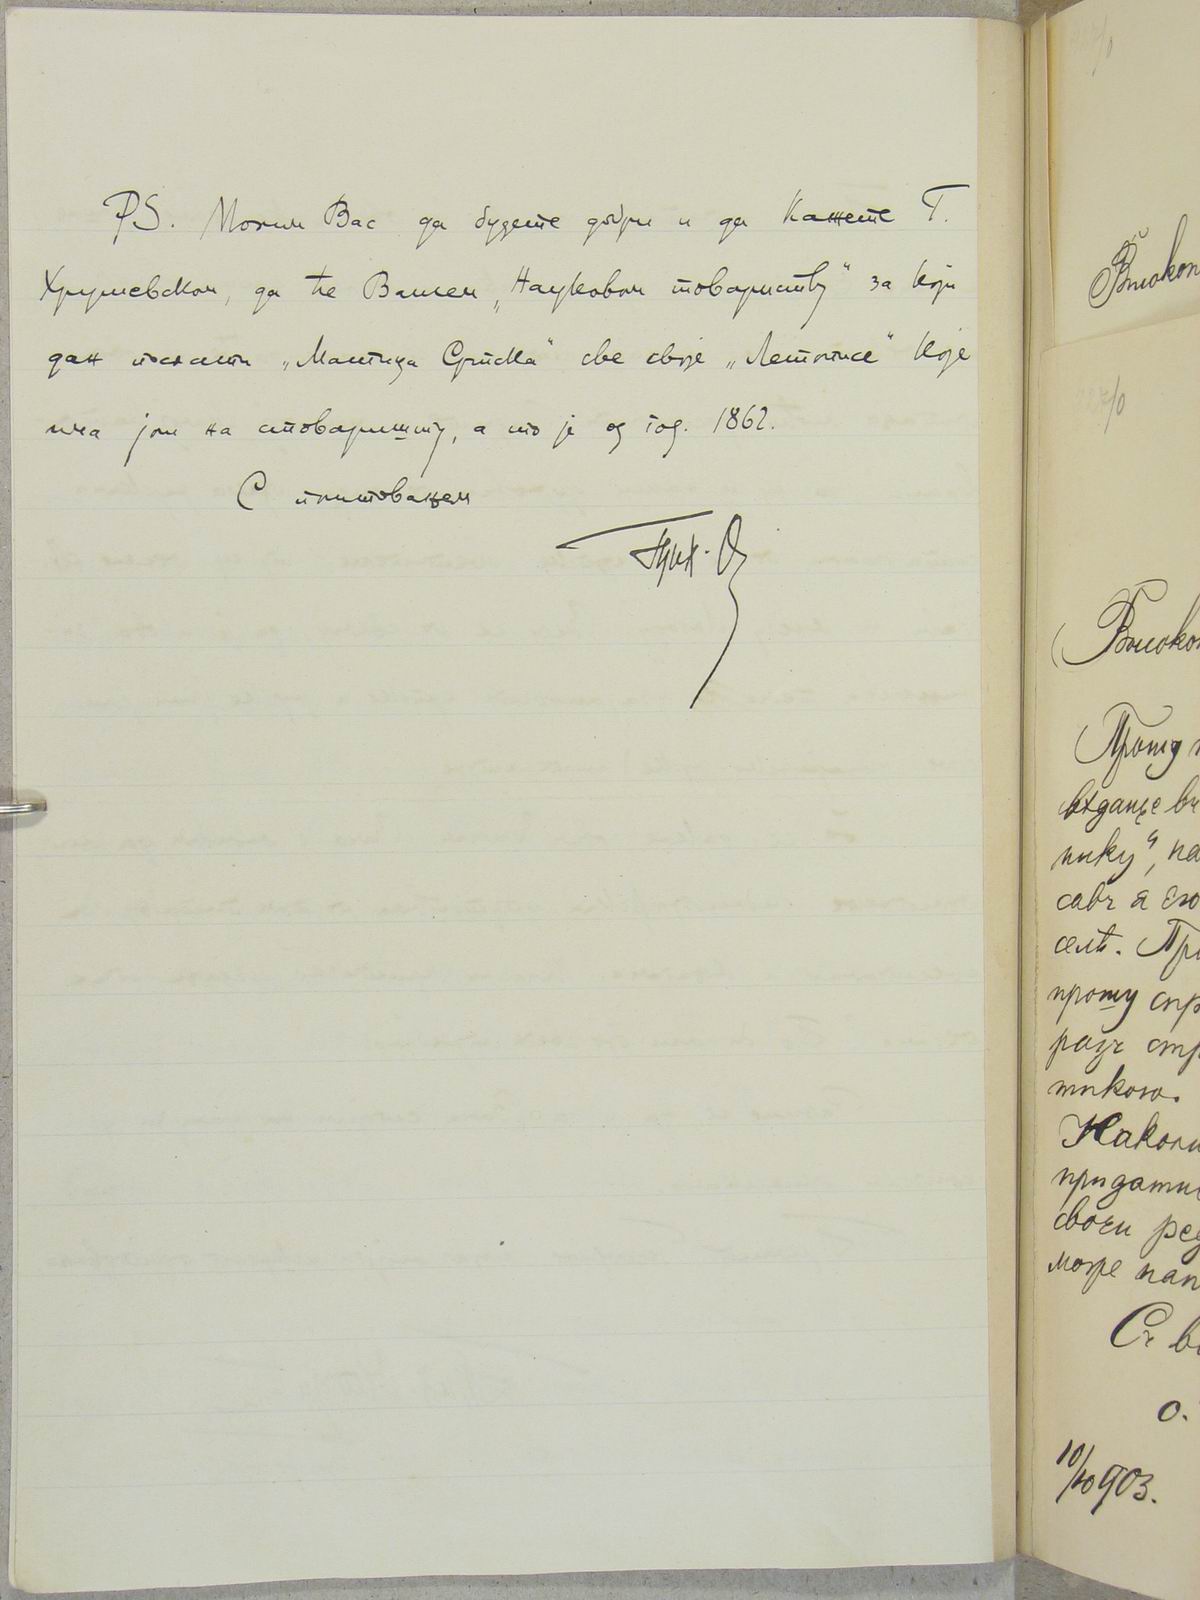 PS. Молим Вас да будете добри и да кажете Г.
Хрушевском, да ће Вашем „Науковом товариству“ за који
дан послати „Матица Српска“ све своје „Летописе“ које
има још на стоваришту, а то је од год. 1862.
С поштовањем
Високоп
Високоп
Прошу
нику“, на
савъ я его
селѣ. При
прошу спр
разъ стр
тикою.
Наколи
придатн
своей ред
може нап
Съ в
о.
10/10 903.